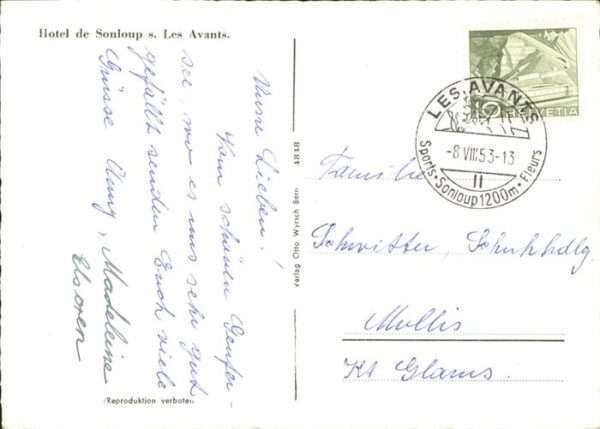 Hotel de Sonloup s. Les Avants.
Meine Lieben!
Vom schönen Genfer-
see, wo es uns sehr gut
gefällt senden Euch viele
Grüsse
Madeleine
Reproduktion verboten
Verlag Otto Wyrsch Bern
4848
HELVETIA
LES AVANTS
-8.VIII.53-13
II
Sports • Sonloup 1200m • Fleurs
Familie
Schwitter, Schuhhdlg.
Mollis
Kt Glarus.